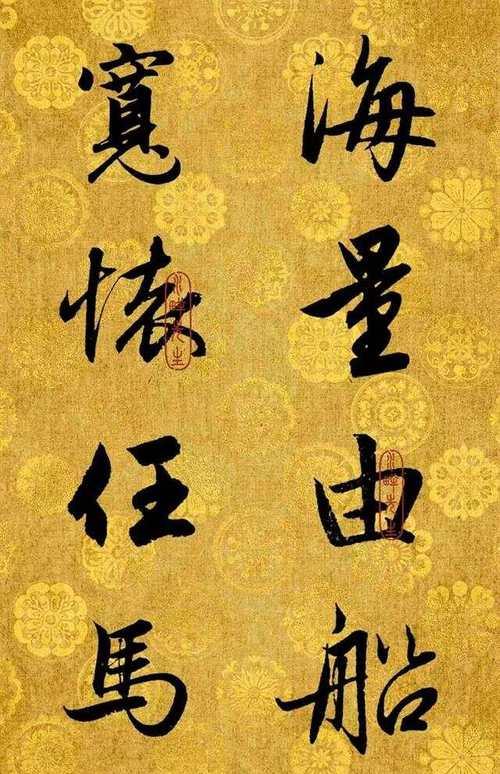 海量由船
寬懷任馬